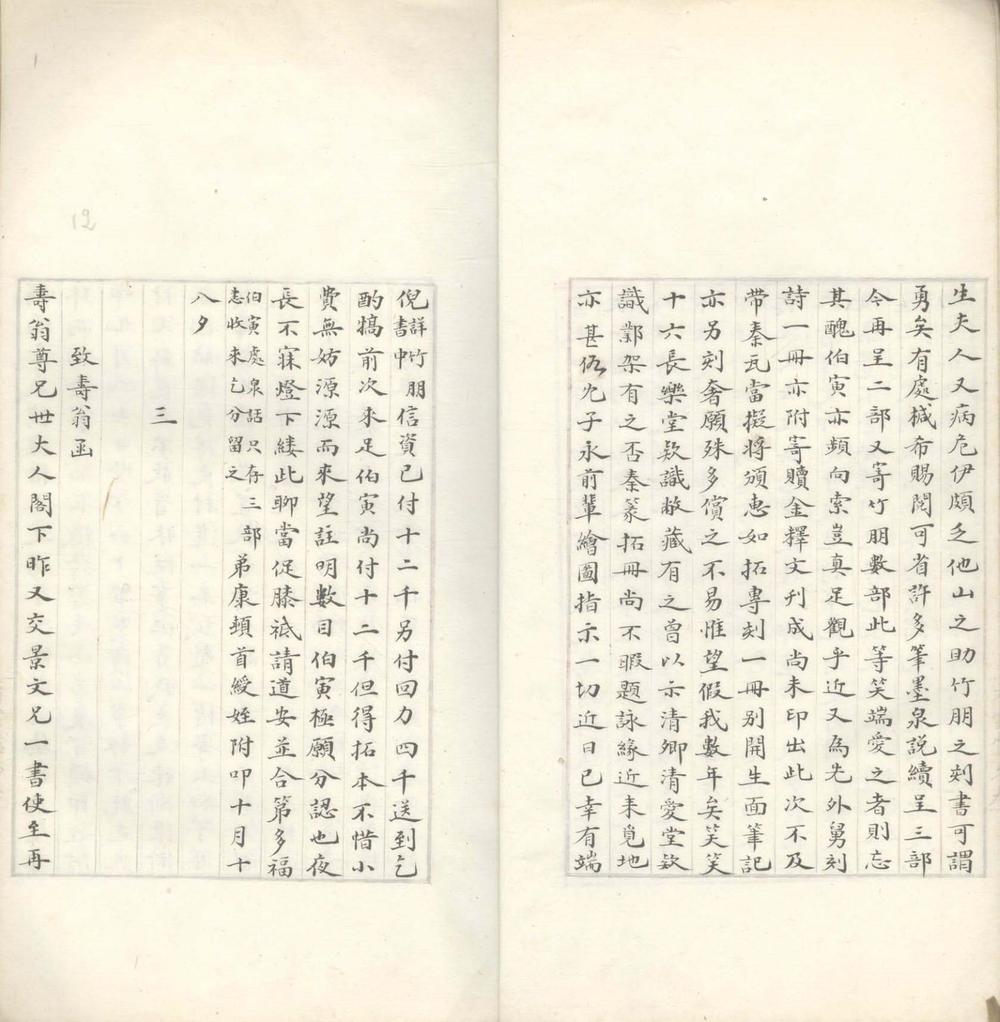 生夫人又病危伊頗乏他山之助竹朋之刻書可謂
勇矣有處椷布賜閱可省許多筆墨泉說續呈三部
今再呈二部又寄竹朋數部此等笑端愛之者則忘
其醜伯寅亦頻向索豈真足觀乎近又為先外舅刻
詩一冊亦附寄贖金釋文刋成尚未印出此次不及
帶秦瓦當擬將頒惠如拓專刻一冊別開生面筆記
亦另刻奢願殊多償之不易惟望假我數年矣笑笑
十六長樂堂欵識敝藏有之曽以示清卿清愛堂欵
識鄴架有之否秦篆拓冊尚不暇題詠緣近来覓地
亦甚伤尤子永前輩繪圖指示一切近日已幸有端
倪詳竹朋信資已付十二千另付回力四千送到乞
書中
酌犒前次来足伯寅尚付十二千但得拓本不惜小
費無妨源源而來望註明數目伯寅極願分認也夜
長不寐燈下縷此聊當促膝祗請道安並合第多福
伯寅處泉話只存三部弟康頓首綬姪附叩十月十
恚收来乞分留之
八夕
三
致壽翁函
壽翁尊兄世大人閣下昨又交景文兄一書使至再
12